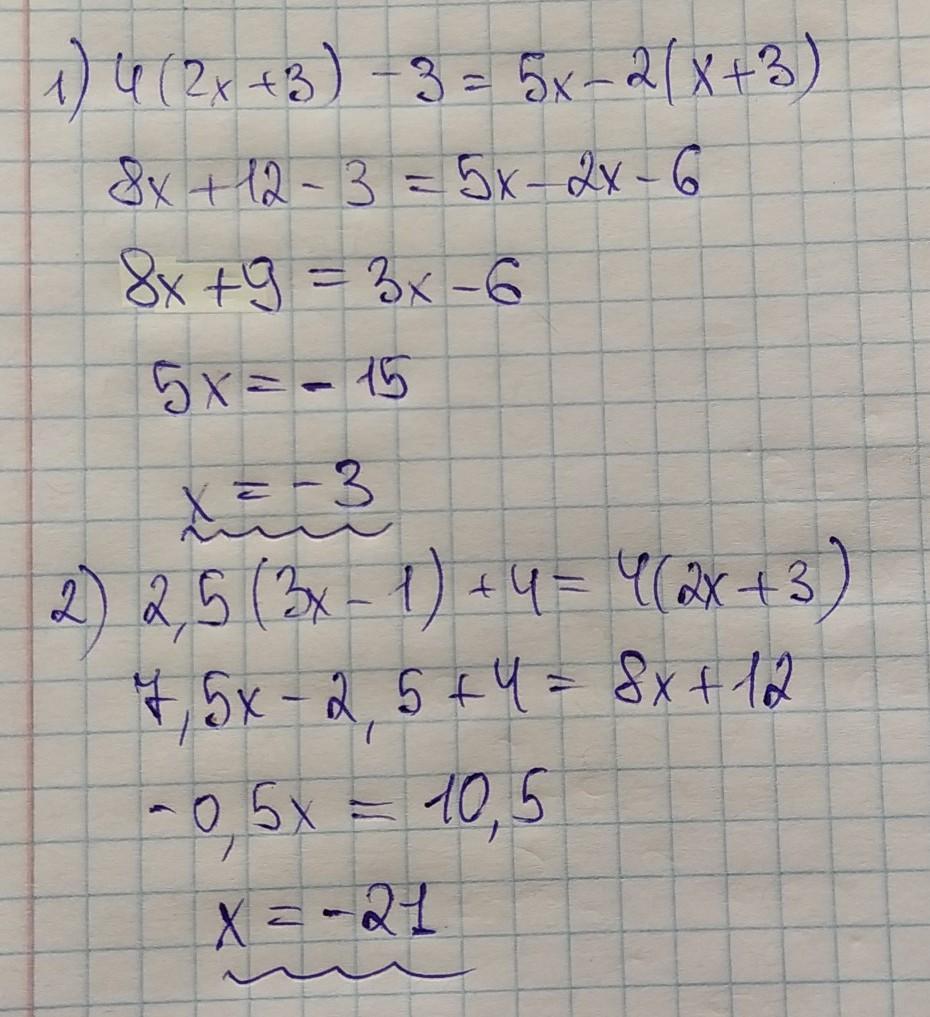 1) 4(2x+3) - 3 = 5x - 2(x+3)
8x + 12 - 3 = 5x - 2x - 6
8x + 9 = 3x - 6
5x = - 15
x = - 3
2) 2,5(3x - 1) + 4 = 4(2x + 3)
7,5x - 2,5 + 4 = 8x + 12
-0,5x = 10,5
x = -21